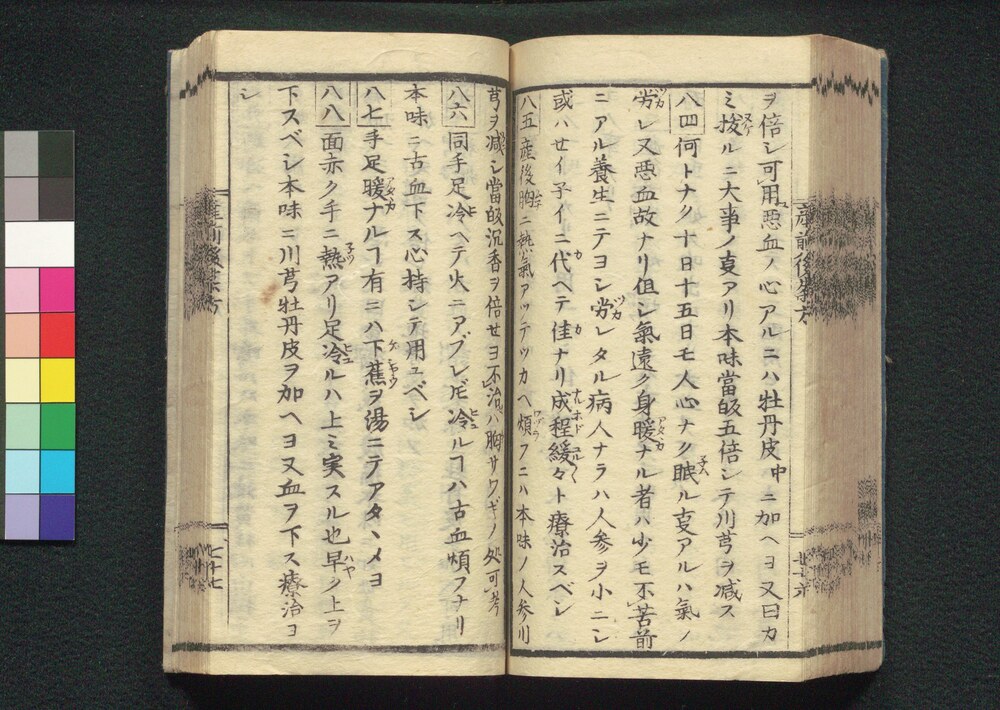 ヲ倍シ可用悪血ノ心アルニハ牡丹皮中ニ加ヘヨ又曰カ
ミ抜ルニ大事ノ叓アリ本味當皈五倍シテ川芎ヲ减ス
八四何トナク十日十五日モ人心ナク眠ル叓アルハ氣ノ
労レ又悪血故ナリ但シ氣遠ク身暖ナル者ハ少モ不苦前
ニアル養生ニテヨシ労レタル病人ナラハ人参ヲ小ニシ
或ハセイ子イニ代ヘテ佳ナリ成程緩々ト療治スベシ
八五産後胸ニ熱氣アッテツカヘ煩フニハ本味ノ人参川
芎ヲ减シ當皈沉香ヲ倍セヨ不治ハ胸サワギノ処可考
八六同手足冷ヘテ火ニアブレ𪜈冷ルヿハ古血煩フナリ
本味ニ古血下ス心持シテ用ユベシ
八七手足暖ナルヿ有ニハ下蕉ヲ湯ニテアタヽメヨ
八八面赤ク手ニ熱アリ足冷ルハ上ミ実スル也早ク上ヲ
下スベシ本味ニ川芎牡丹皮ヲ加ヘヨ又血ヲ下ス療治ヨ
シ